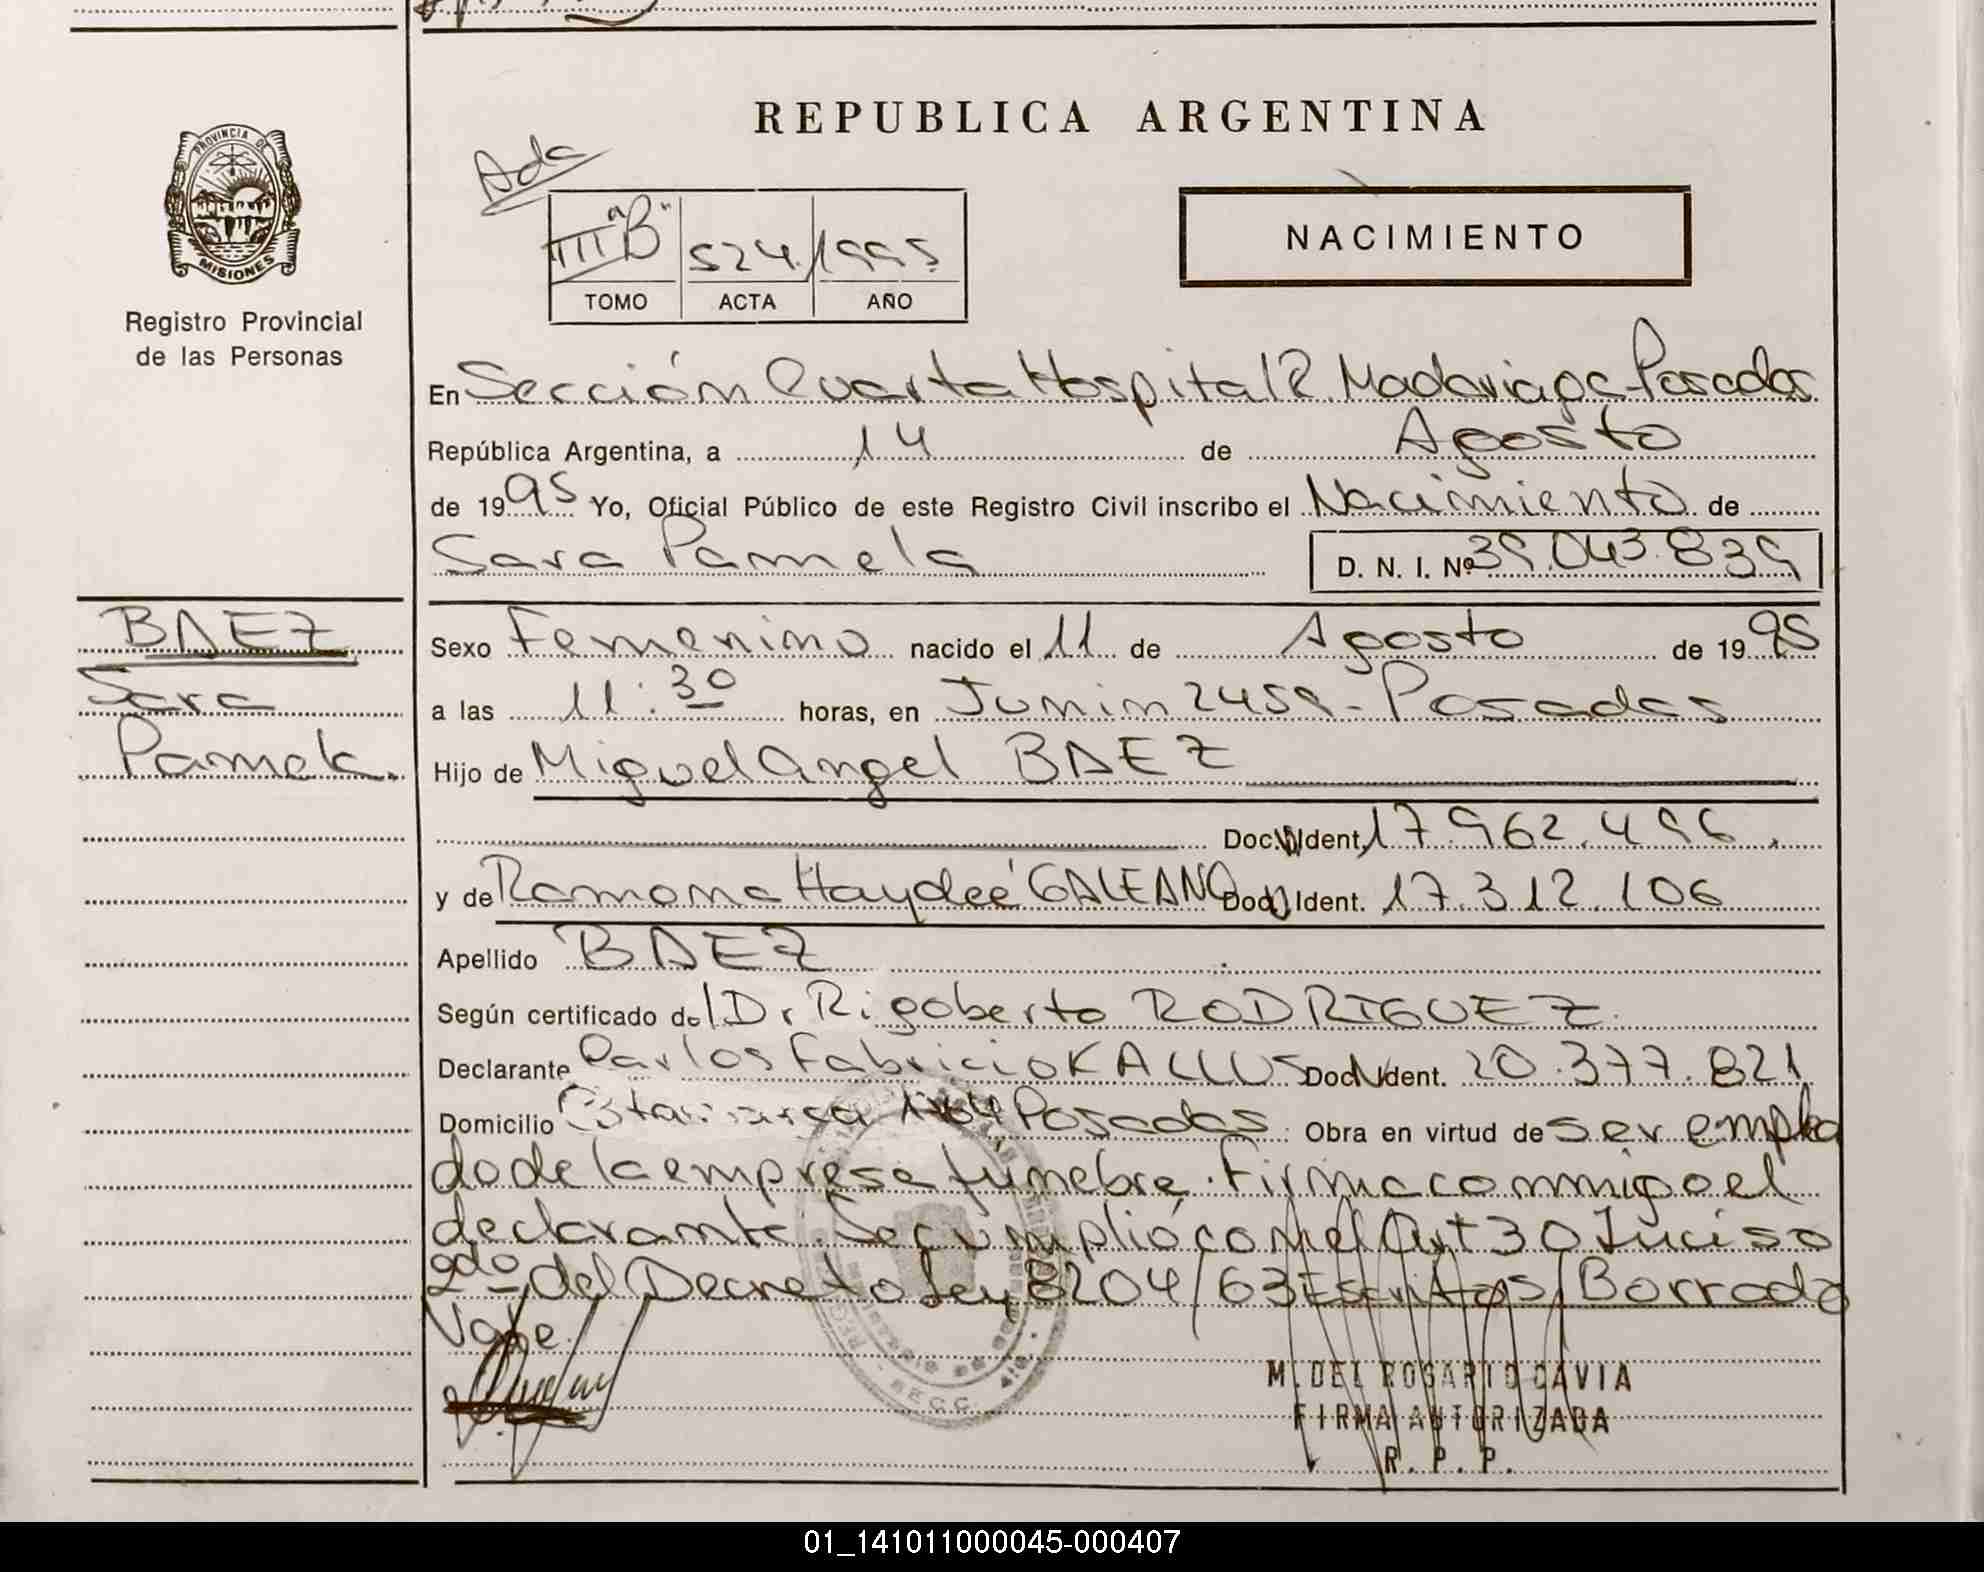 REPUBLICA ARGENTINA
PROVINCIA DE
MISIONES
Registro Provincial
de las Personas
Ada
III "B" 524 1995
TOMO ACTA AÑO
NACIMIENTO
En Sección Cuarta Hospital R. Madariaga-Posadas
República Argentina, a 14 de Agosto
de 1995 Yo, Oficial Público de este Registro Civil inscribo el Nacimiento de
Sara Pamela D. N. I. Nº 39.043.839
BAEZ
Sara
Pamela.
Sexo Femenino nacido el 11 de Agosto de 1995
a las 11:30 horas, en Junin 2459 - Posadas
Hijo de Miguel Angel BAEZ
Doc. Ident. 17.962.496.
y de Ramona Haydeé GALEANO Doc. Ident. 17.312.106
Apellido BAEZ
Según certificado del Dr Rigoberto RODRIGUEZ.
Declarante Carlos Fabricio KALLUS Doc. Ident. 20.377.821
Domicilio Posadas. Obra en virtud de ser emplea
do de la empresa fúnebre. Firma conmigo el
declarante. Se cumplió con el Art 30 Inciso
2do del Decreto Ley 8204/63 Escrito s/ Borrado
Vale.
M. DEL ROSARIO CAVIA
FIRMA AUTORIZADA
R. P. P.
01_141011000045-000407